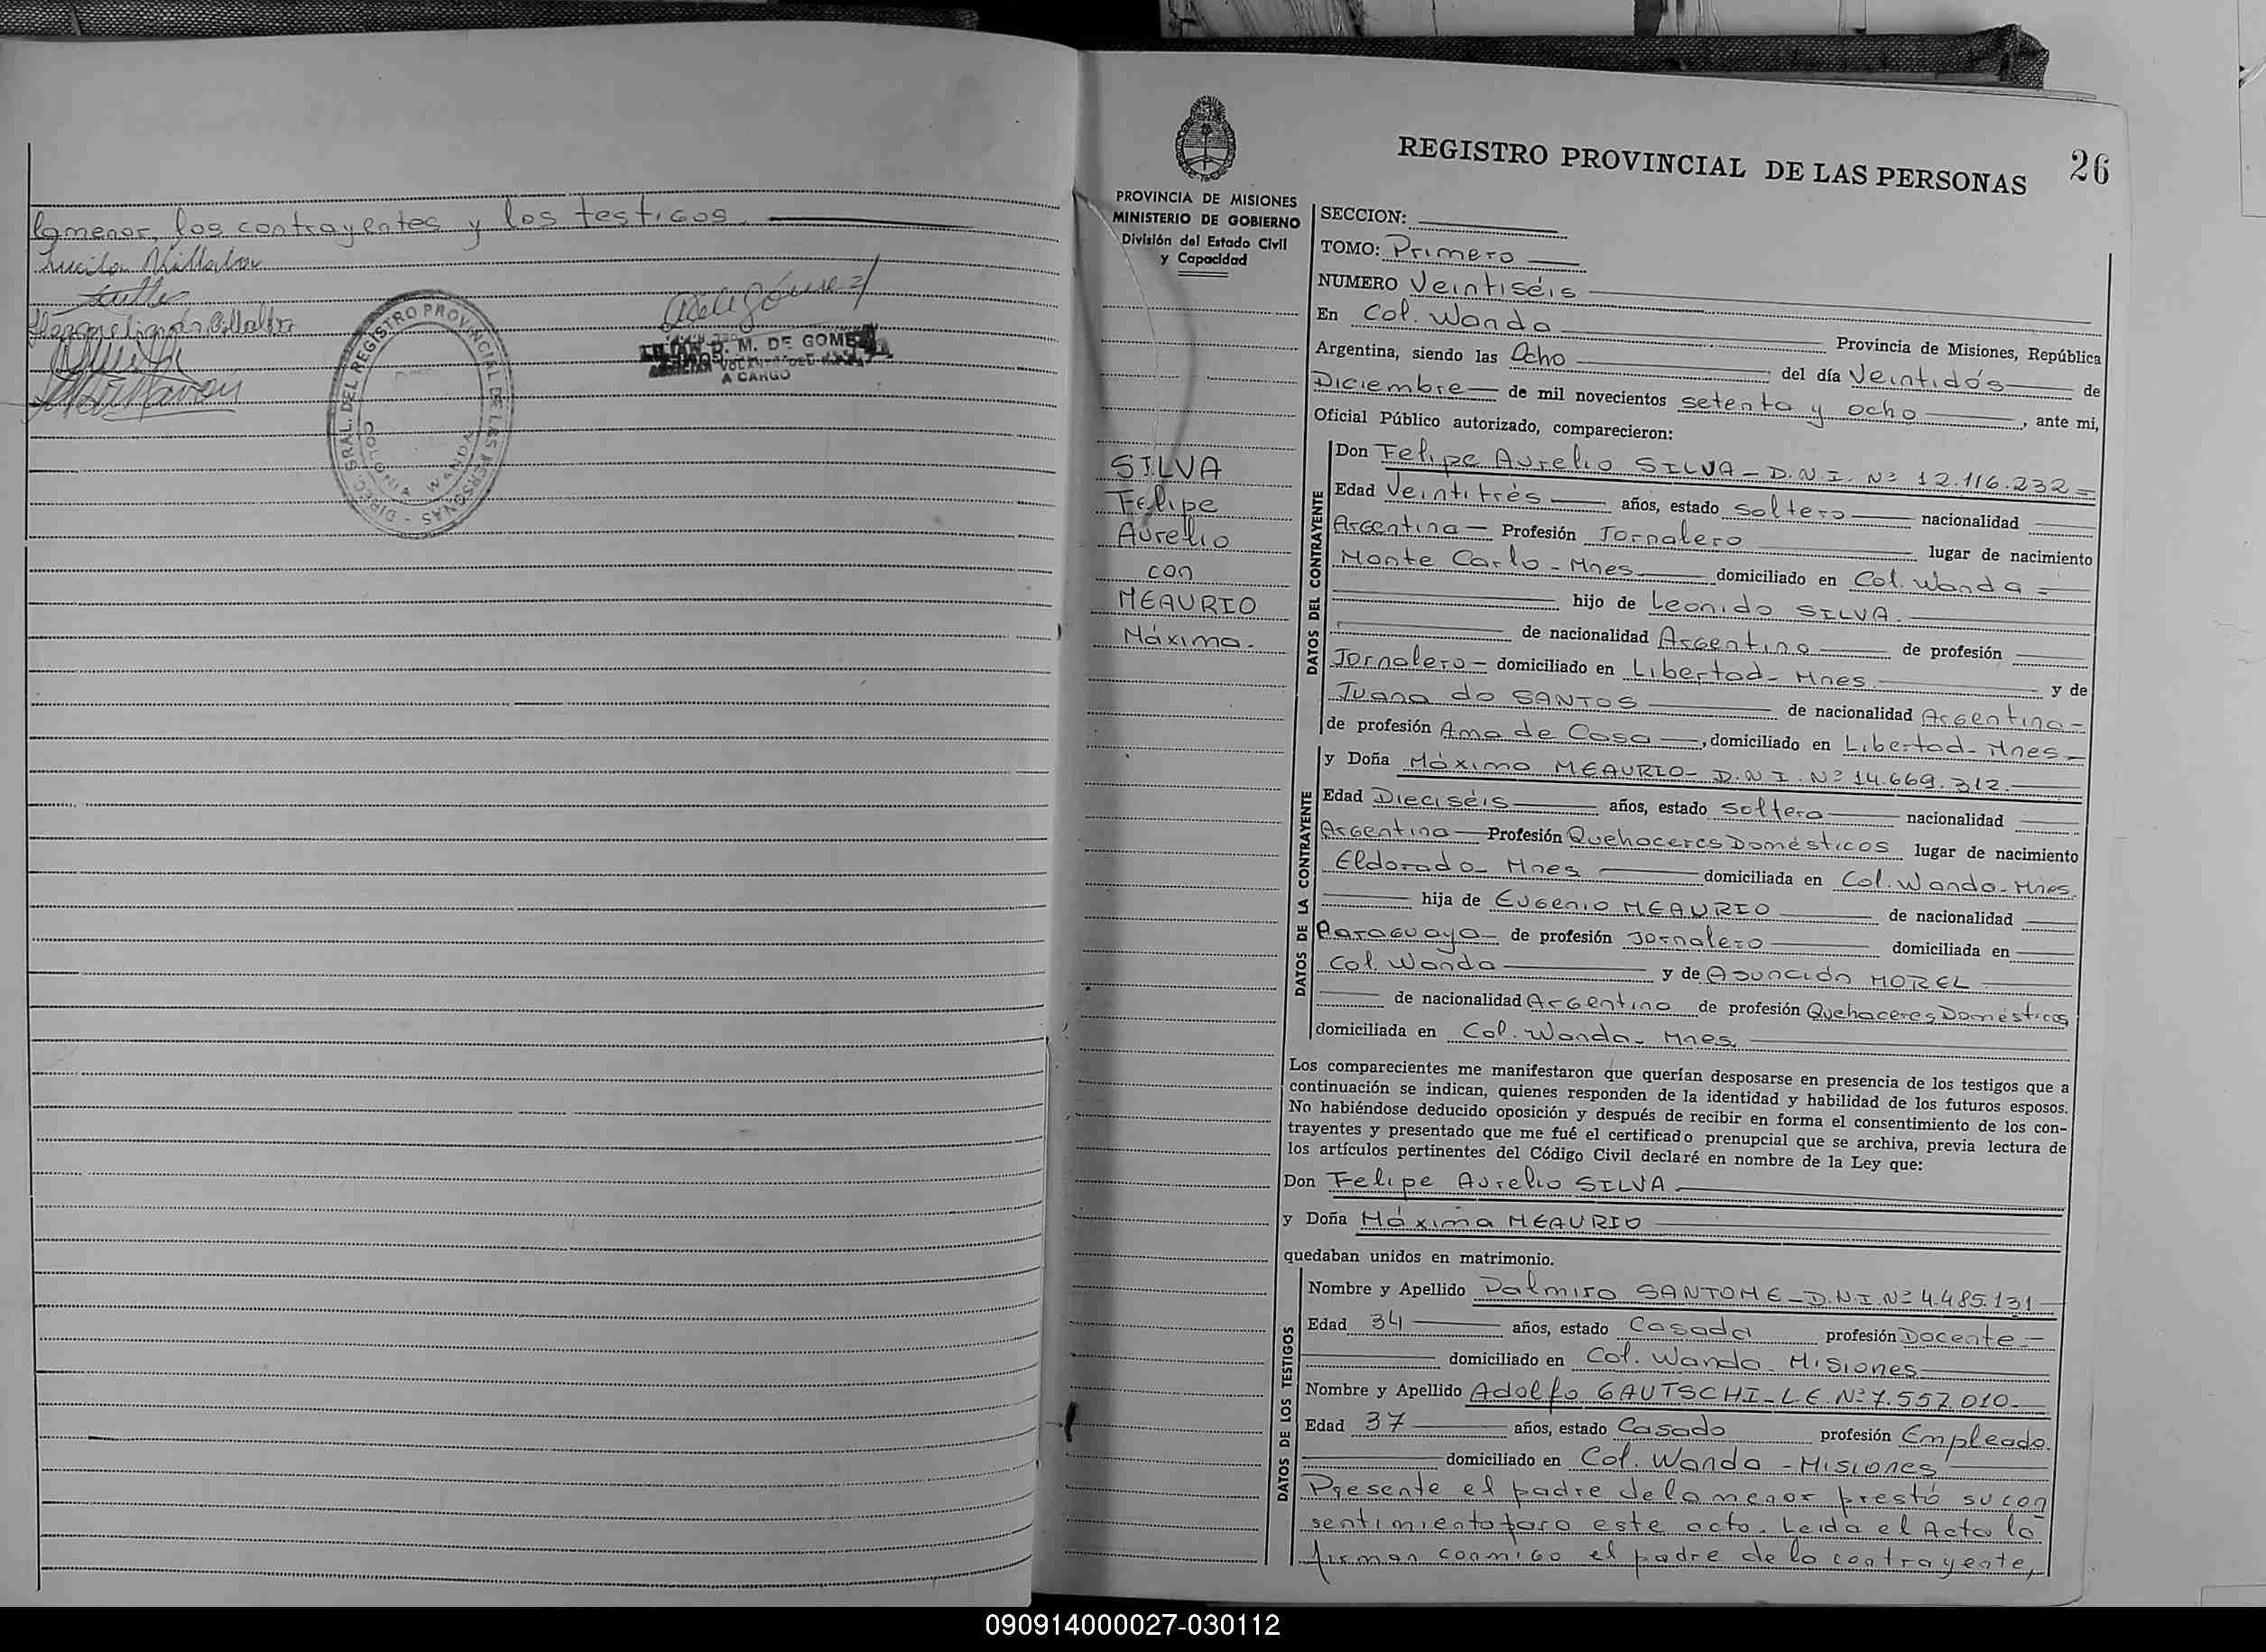 la menor, los contrayentes y los testigos.
Lucila Villalba
DIREC. GRAL. DEL REGISTRO PROVINCIAL DE LAS PERSONAS
COLONIA WANDA
M. DE GOMEZ
A CARGO
PROVINCIA DE MISIONES
MINISTERIO DE GOBIERNO
División del Estado Civil
y Capacidad
SILVA
Felipe
Aurelio
con
MEAURIO
Máxima.
REGISTRO PROVINCIAL DE LAS PERSONAS 26
SECCION:
TOMO: Primero
NUMERO Veintiséis
En Col. Wanda Provincia de Misiones, República
Argentina, siendo las Ocho del día Veintidós de
Diciembre de mil novecientos setenta y ocho, ante mi,
Oficial Público autorizado, comparecieron:
DATOS DEL CONTRAYENTE
Don Felipe Aurelio SILVA - D.N.I. Nº 12.116.232
Edad Veintitrés años, estado soltero nacionalidad
Argentina Profesión Jornalero lugar de nacimiento
Monte Carlo - Mnes domiciliado en Col. Wanda
hijo de Leonido SILVA.
de nacionalidad Argentina de profesión
Jornalero domiciliado en Libertad - Mnes y de
Juana do SANTOS de nacionalidad Argentina
de profesión Ama de Casa, domiciliado en Libertad - Mnes
DATOS DE LA CONTRAYENTE
y Doña Máxima MEAURIO - D.N.I. Nº 14.669.312.
Edad Dieciséis años, estado soltera nacionalidad
Argentina Profesión Quehaceres Domésticos lugar de nacimiento
Eldorado - Mnes domiciliada en Col. Wanda - Mnes.
hija de Eugenio MEAURIO de nacionalidad
Paraguaya de profesión Jornalero domiciliada en
Col. Wanda y de Asunción MOREL
de nacionalidad Argentina de profesión Quehaceres Domésticos
domiciliada en Col. Wanda - Mnes.
Los comparecientes me manifestaron que querían desposarse en presencia de los testigos que a
continuación se indican, quienes responden de la identidad y habilidad de los futuros esposos.
No habiéndose deducido oposición y después de recibir en forma el consentimiento de los con-
trayentes y presentado que me fué el certificado prenupcial que se archiva, previa lectura de
los artículos pertinentes del Código Civil declaré en nombre de la Ley que:
Don Felipe Aurelio SILVA
y Doña Máxima MEAURIO
quedaban unidos en matrimonio.
DATOS DE LOS TESTIGOS
Nombre y Apellido Dalmiro SANTOME - D.N.I. Nº 4.485.131
Edad 34 años, estado Casado profesión Docente
domiciliado en Col. Wanda - Misiones
Nombre y Apellido Adolfo GAUTSCHI - L.E. Nº 7.557.010
Edad 37 años, estado Casado profesión Empleado.
domiciliado en Col. Wanda - Misiones
Presente el padre de la menor prestó su con
sentimiento para este acto. Leida el Acta la
firman conmigo el padre de la contrayente,
090914000027-030112